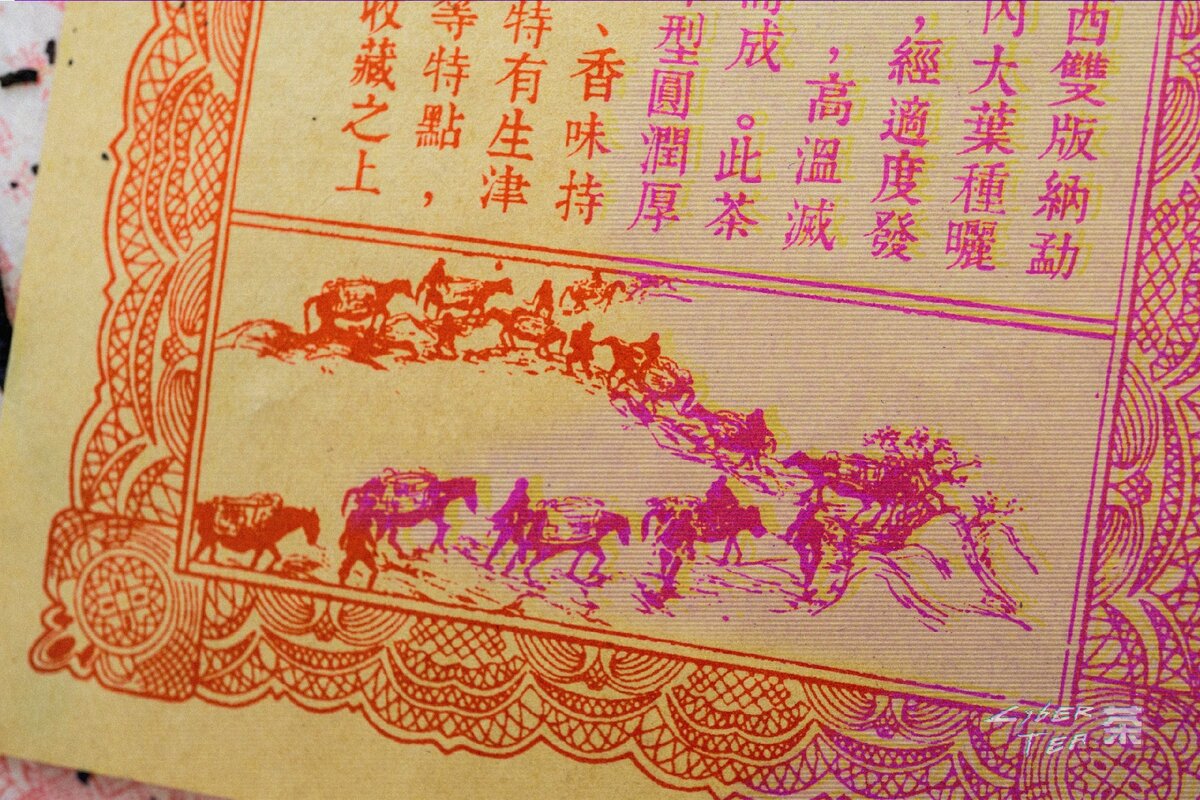 西雙版納勐
内大葉種曬
，經適度發
，高溫滅
成。此茶
型圓潤厚
、香味持
特有生津
等特點，
收藏之上
CYBER
TEA
茶